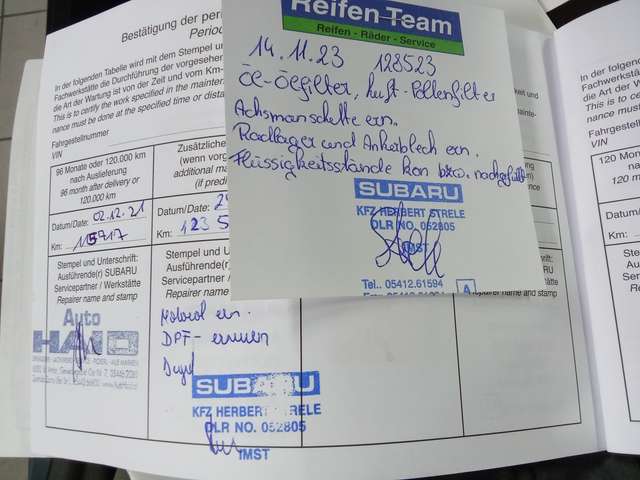 Bestätigung der per
Period
In der folgenden Tabelle wird mit dem Stempel und
Fachwerkstätte die Durchführung der vorgesehe
die Art der Wartung ist von der Zeit und vom Km-
This is to certify the work specified in the mainten
nance must be done at the specified time or distan
Fahrgestellnummer
VIN
96 Monate oder 120.000 km
nach Auslieferung
96 month after delivery or
120.000 km
Zusätzliche
(wenn vorg
additional ma
(if predi
Datum/Date: 02.12.21
Km: 115717
Datum/Date: 2
Km: 123 5
Stempel und Unterschrift:
Ausführende(r) SUBARU
Servicepartner / Werkstätte
Repairer name and stamp
Stempel und Untersc
Ausführende(r) SUBAR
Servicepartner / Werk
Repairer name and st
Auto
Motoröl ern.
DPF - erneuern
SUBARU
KFZ HERBERT STRELE
DLR NO. 052805
IMST
Reifen-Team
Reifen - Räder - Service
14.11.23 128523
Öl-Ölfilter, Luft-Pollenfilter
Achsmanschette ern.
Radlager und Ankerblech ern.
Flüssigkeitsstände kon bzw. nachgefüllt
SUBARU
KFZ HERBERT STRELE
DLR NO. 052805
IMST
Tel.. 05412.61594
A
schrift:
SUBARU
Werkstätte
Repairer name and stamp
In der folgenden Tab
Fachwerkstätte die D
die Art der Wartung is
This is to certify the w
nance must be done
Fahrgestellnummer
VIN
120 Monat
nach
120 mont
Datum/Date:
Km:
Stempel und
Ausführende
Servicepartn
Repairer na